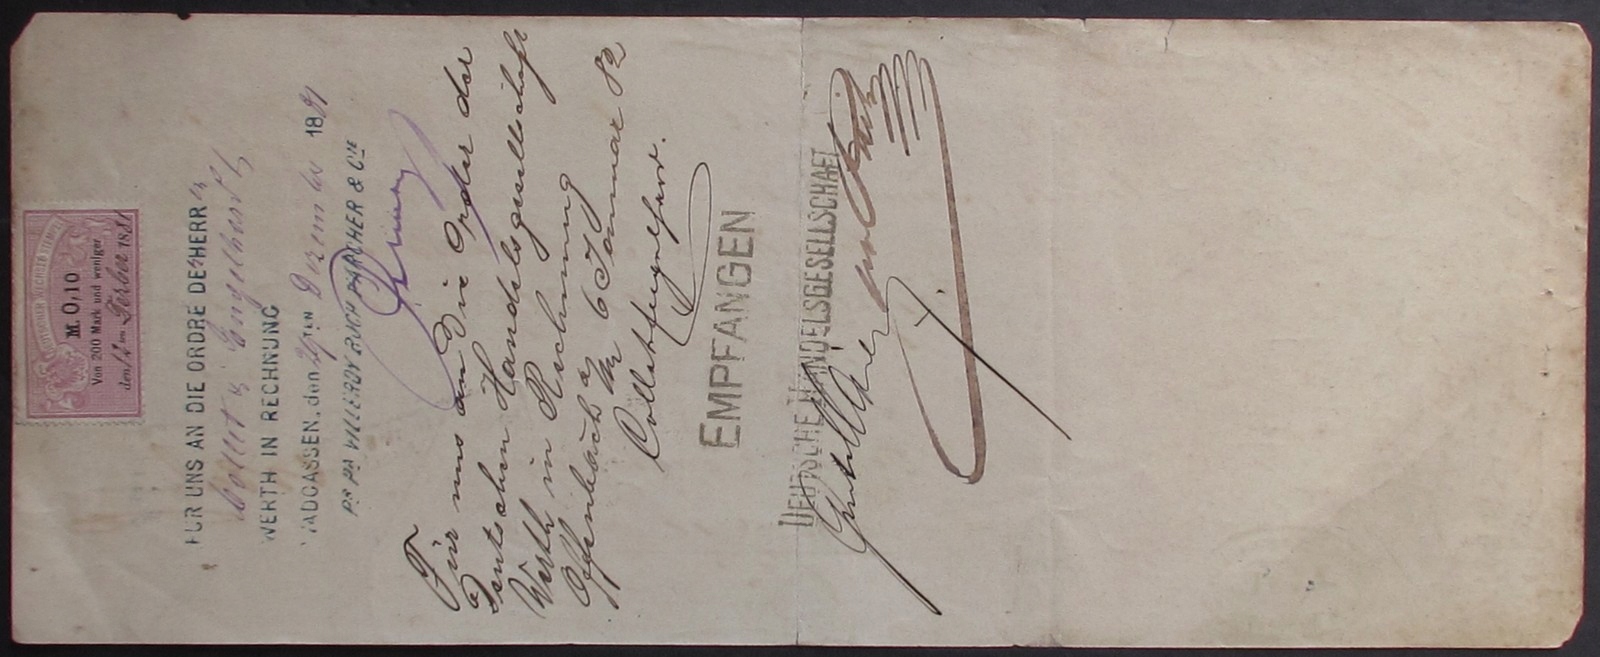 DEUTSCHER WECHSEL-STEMPEL
M. 0,10
Von 200 Mark und weniger
den 12 ten Dezber 1881
FÜR UNS AN DIE ORDRE DES HERRN
Collet & Engelhard
WERTH IN RECHNUNG
WADGASSEN, den 29 TEN Dezember 1881
Pr Pa VILLEROY BUCH KARCHER & Cie
Für uns an die Order der
Deutschen Handelsgesellschaft
Werth in Rechnung
Offenbach a/M 6 Januar 82
Collet & Engelhard.
EMPFANGEN
DEUTSCHE HANDELSGESELLSCHAFT